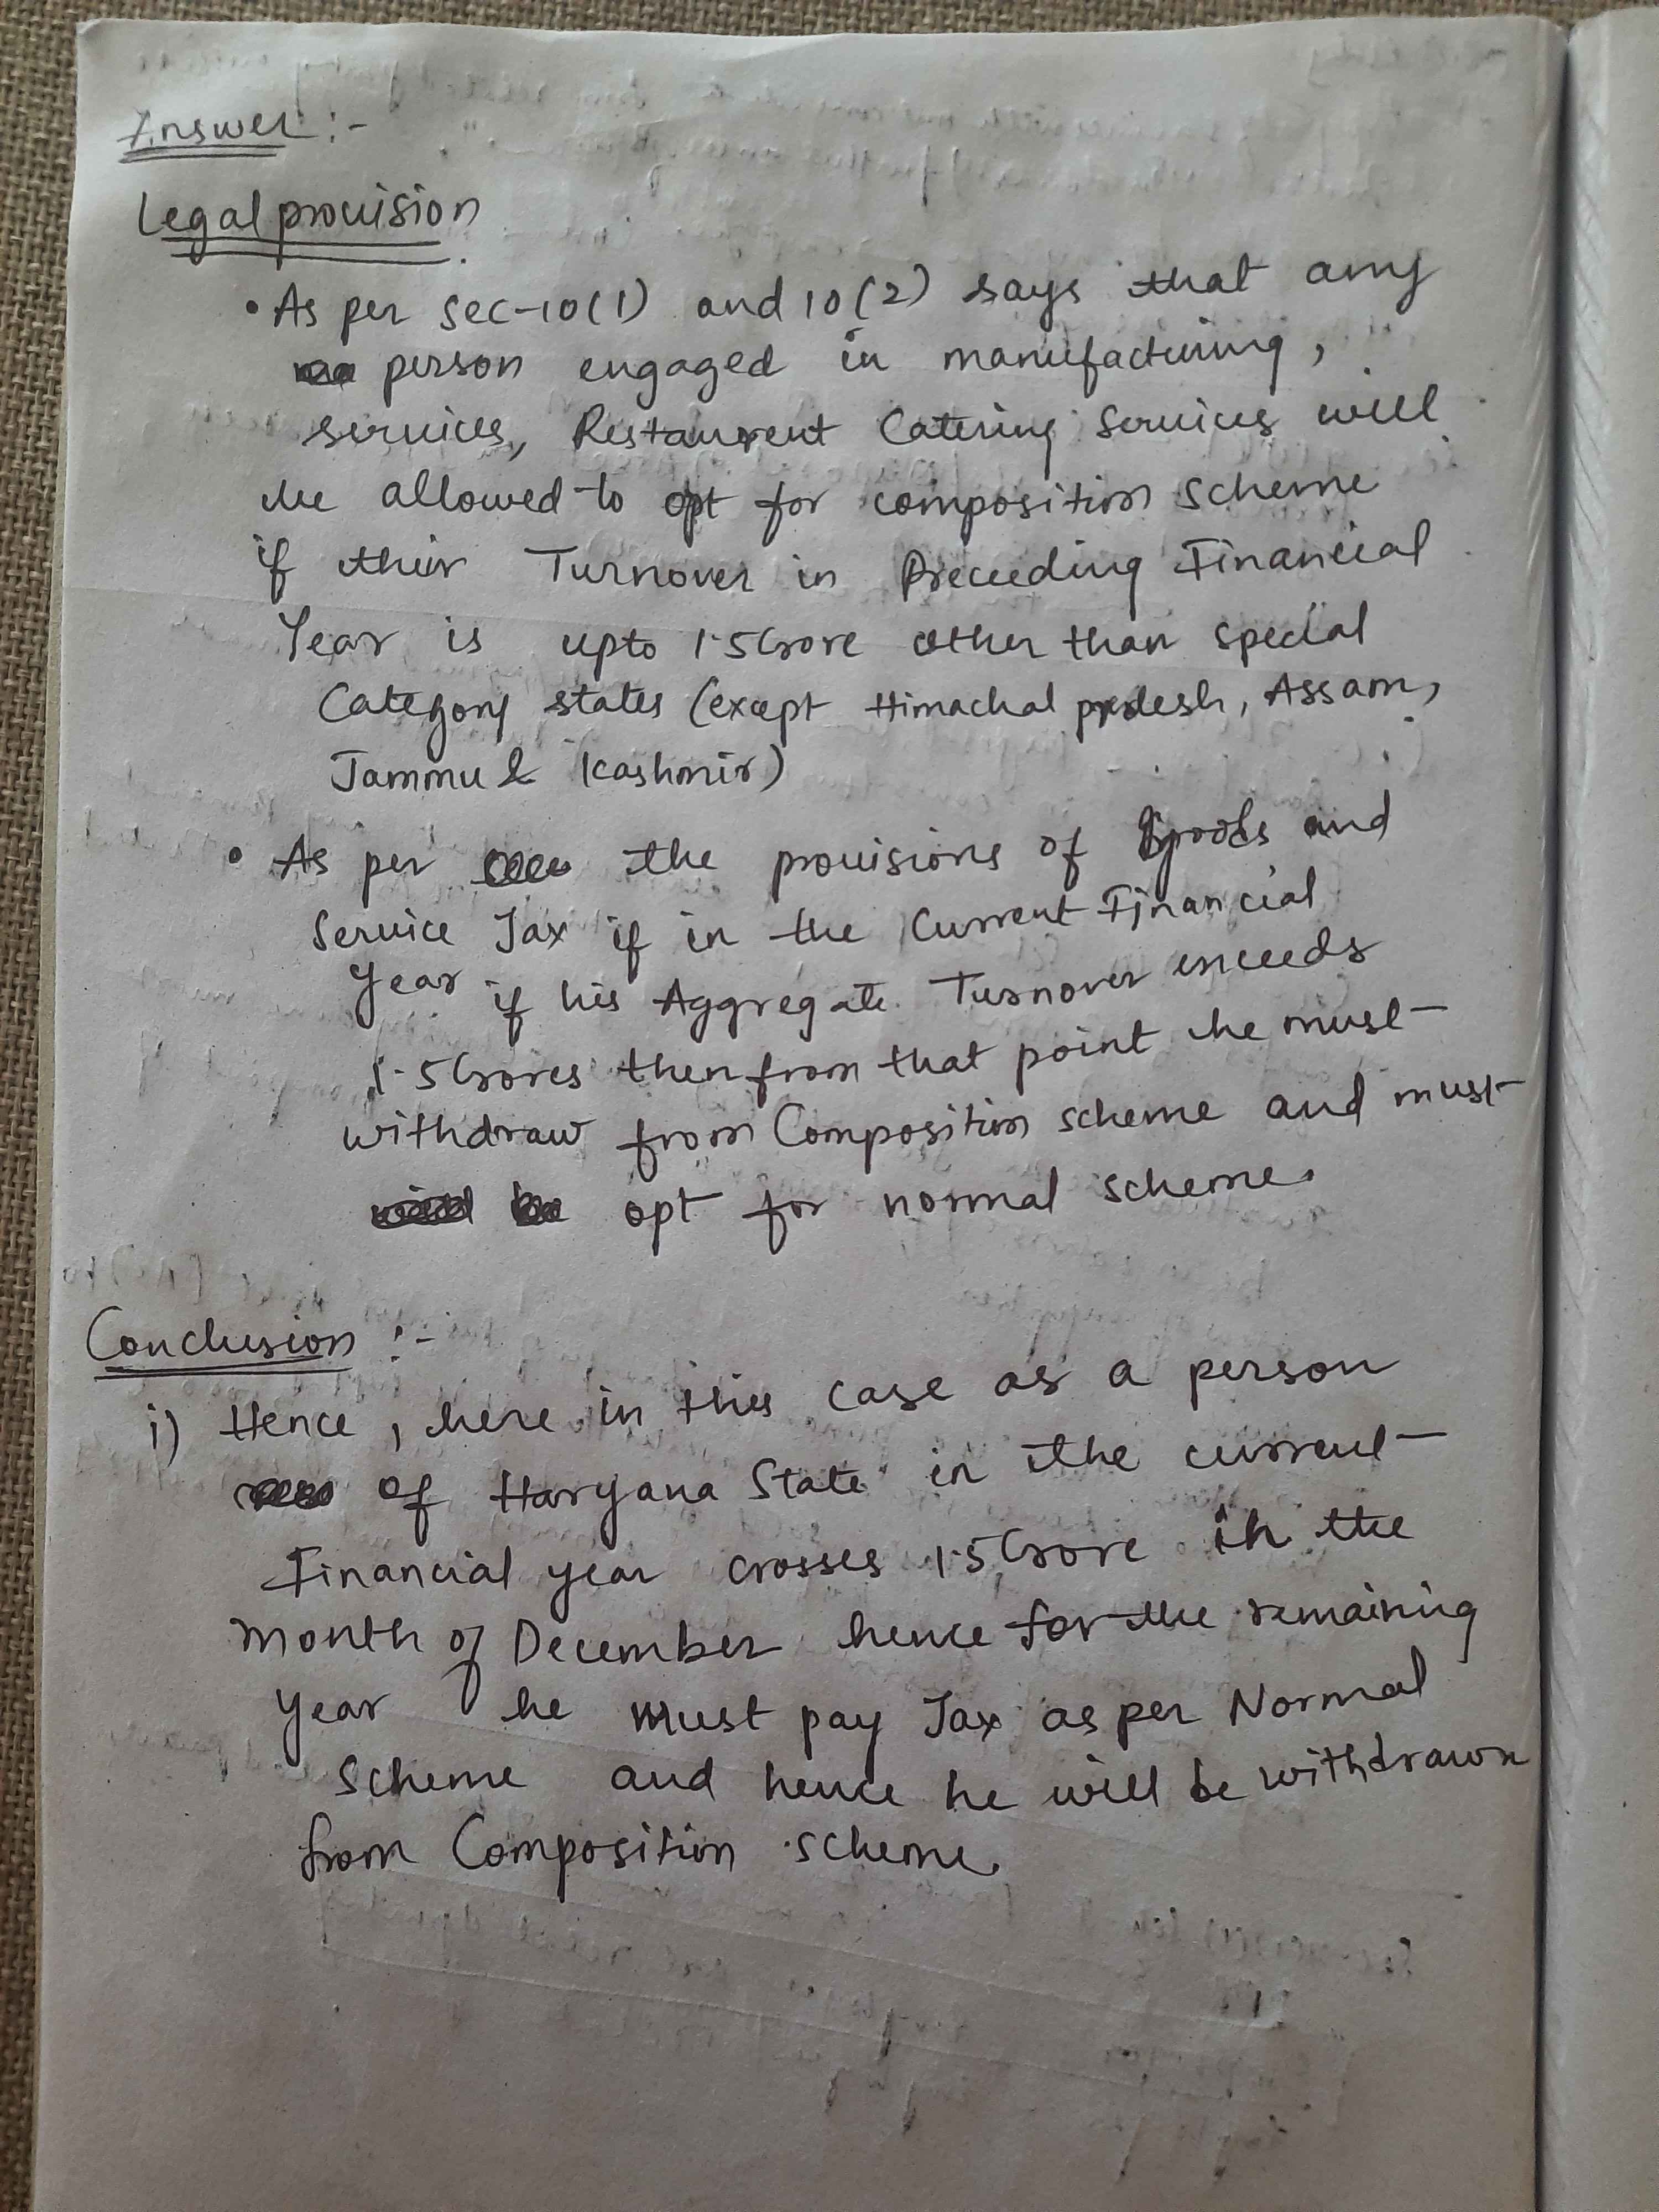 Answer :-
Legal provision
• As per Sec-10(1) and 10(2) says that any
person engaged in manufacturing,
services, Restaurent Catering Services will
be allowed to opt for composition scheme
if their Turnover in Preceeding Financial
Year is upto 1.5 Crore other than special
Category states (except Himachal pradesh, Assam,
Jammu & Kashmir)
• As per the provisions of Goods and
Service Tax if in the Current Financial
Year if his Aggregate Turnover exceeds
1.5 Crores then from that point he must
withdraw from Composition scheme and must
opt for normal scheme.
Conclusion :-
i) Hence, here in this case as a person
of Haryana State in the current
Financial year crosses 1.5 Crore in the
month of December hence for the remaining
year he must pay Tax as per Normal
Scheme and hence he will be withdrawn
from Composition scheme.